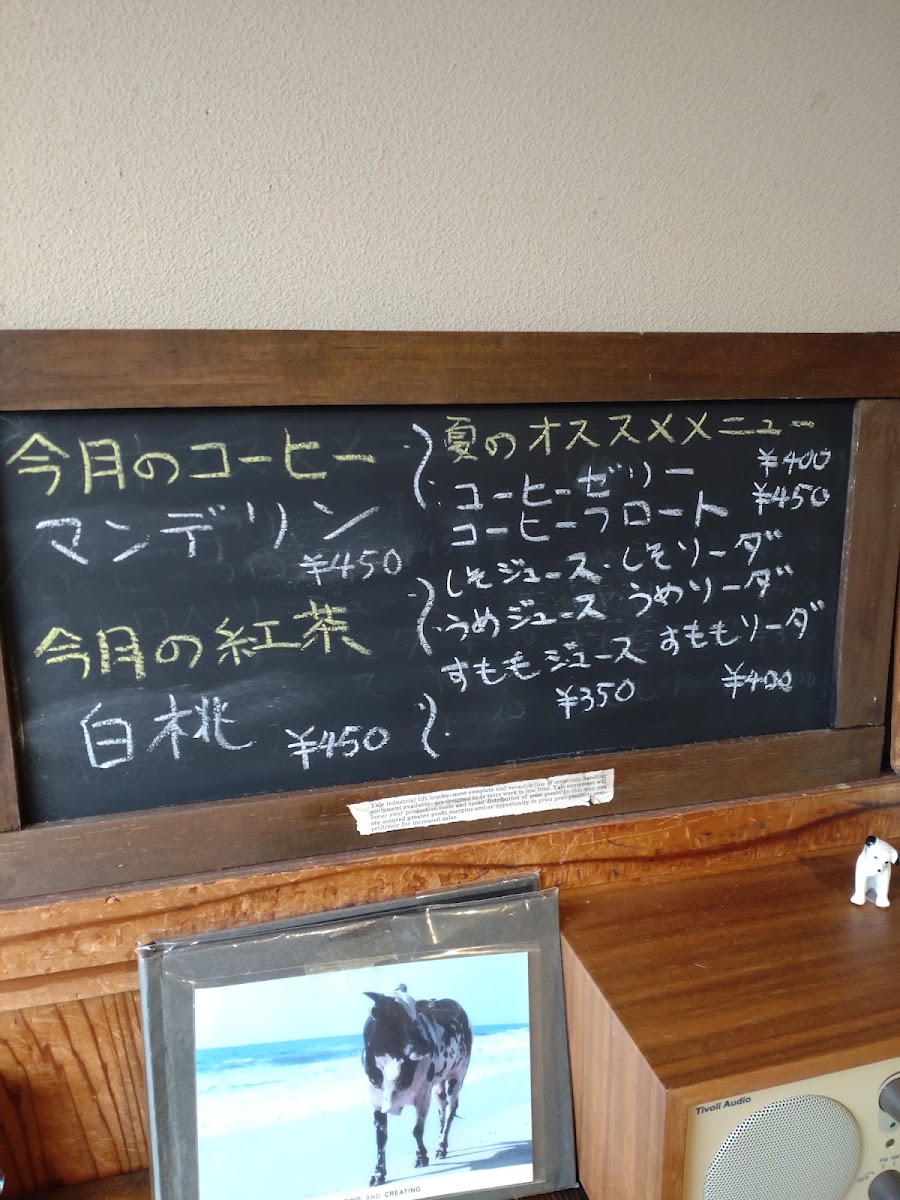 今月のコーヒー
マンデリン
¥450
今月の紅茶
白桃 ¥450
夏のオススメメニュー
コーヒーゼリー ¥400
コーヒーフロート ¥450
しそジュース・しそソーダ
うめジュース うめソーダ
すももジュース すももソーダ
¥350 ¥400
Yale industrial lift trucks—most complete and versatile line of materials handling
equipment available—are designed to do more work in less time. Yale equipment will
lower your production costs and speed distribution of your goods. In this way you
are assured greater profit margins and an opportunity to price your products com-
petitively for increased sales.
AND CREATING
Tivoli Audio
FM